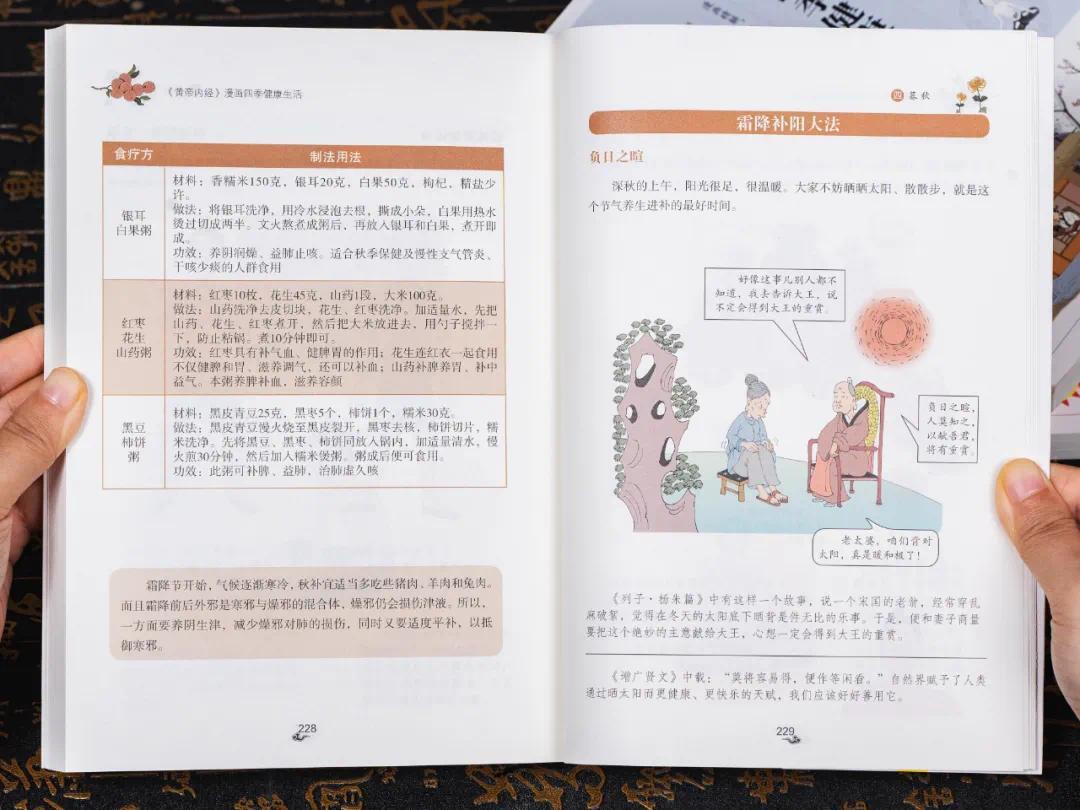 《黄帝内经》漫画四季健康生活
食疗方
制法用法
银耳
白果粥
材料：香糯米150克，银耳20克，白果50克，枸杞，精盐少
许。
做法：将银耳洗净，用冷水浸泡去根，撕成小朵，白果用热水
烫过切成两半。文火熬煮成粥后，再放入银耳和白果，煮开即
成。
功效：养阴润燥、益肺止咳。适合秋季保健及慢性支气管炎、
干咳少痰的人群食用
红枣
花生
山药粥
材料：红枣10枚，花生45克，山药1段，大米100克。
做法：山药洗净去皮切块，花生、红枣洗净。加适量水，先把
山药、花生、红枣煮开，然后把大米放进去，用勺子搅拌一
下，防止粘锅。煮10分钟即可。
功效：红枣具有补气血、健脾胃的作用；花生连红衣一起食用
不仅健脾和胃、滋养调气，还可以补血；山药补脾养胃、补中
益气。本粥养脾补血，滋养容颜
黑豆
柿饼
粥
材料：黑皮青豆25克，黑枣5个，柿饼1个，糯米30克。
做法：黑皮青豆慢火烧至黑皮裂开，黑枣去核，柿饼切片，糯
米洗净。先将黑豆、黑枣、柿饼同放入锅内，加适量清水，慢
火煎30分钟，然后加入糯米煲粥。粥成后便可食用。
功效：此粥可补脾、益肺，治肺虚久咳
霜降节开始，气候逐渐寒冷，秋补宜适当多吃些猪肉、羊肉和兔肉。
而且霜降前后外邪是寒邪与燥邪的混合体，燥邪仍会损伤津液。所以，
一方面要养阴生津，减少燥邪对肺的损伤，同时又要适度平补，以抵
御寒邪。
228
四 暮秋
霜降补阳大法
负日之暄
深秋的上午，阳光很足，很温暖。大家不妨晒晒太阳、散散步，就是这
个节气养生进补的最好时间。
好像这事儿别人都不
知道，我去告诉大王，说
不定会得到大王的重赏。
负日之暄，
人莫知之，
以献吾君，
将有重赏。
老太婆，咱们背对
太阳，真是暖和极了！
《列子·杨朱篇》中有这样一个故事，说一个宋国的老翁，经常穿乱
麻破絮，觉得在冬天的太阳底下晒背是件无比的乐事。于是，便和妻子商量
要把这个绝妙的主意献给大王，心想一定会得到大王的重赏。
《增广贤文》中载：“莫将容易得，便作等闲看。”自然界赋予了人类
通过晒太阳而更健康、更快乐的天赋，我们应该好好善用它。
229